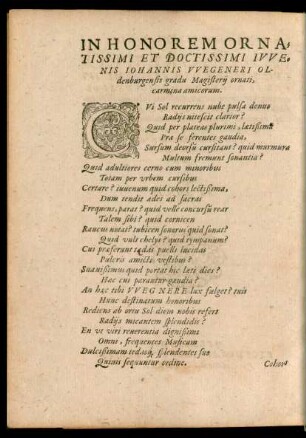 IN HONOREM ORNA-
TISSIMI ET DOCTISSIMI IVVE-
NIS IOHANNIS VVEGENERI OL-
denburgensis gradu Magisterij ornati,
carmina amicorum.
CVi Sol recurrens nube pulsa denuo
Radijs nitescit clarior?
Quid per plateas plurimi, lætißima
Præ se ferentes gaudia,
Sursum deorsū cursitant? quid murmura
Multum fremunt sonantia?
Quid adultiores cerno cum minoribus
Totam per vrbem cursibus
Certare? iuuenum quid cohors lectißima,
Dum tendit ades ad sacras
Frequens, parat? quid velle concursū rear
Talem sibi? quid cornicen
Raucus notat? tubicen sonorus quid sonat?
Quid vult chelys? quid tympanum?
Cur præferunt tædas puelli lucidas
Pulcris amicti vestibus?
Suauißimus quid portat hic lati dies?
Hac cur parantur gaudia?
An hæc tibi VVEGNERE lux fulget? tuis
Hunc destinatum honoribus
Rediens ab ortu Sol diem nobis refert
Radijs micantem splendidis?
En vt viri reuerentia dignißimi
Omni, frequentes Musicum
Dulcißimam
sequuntur ordine.
Cohors